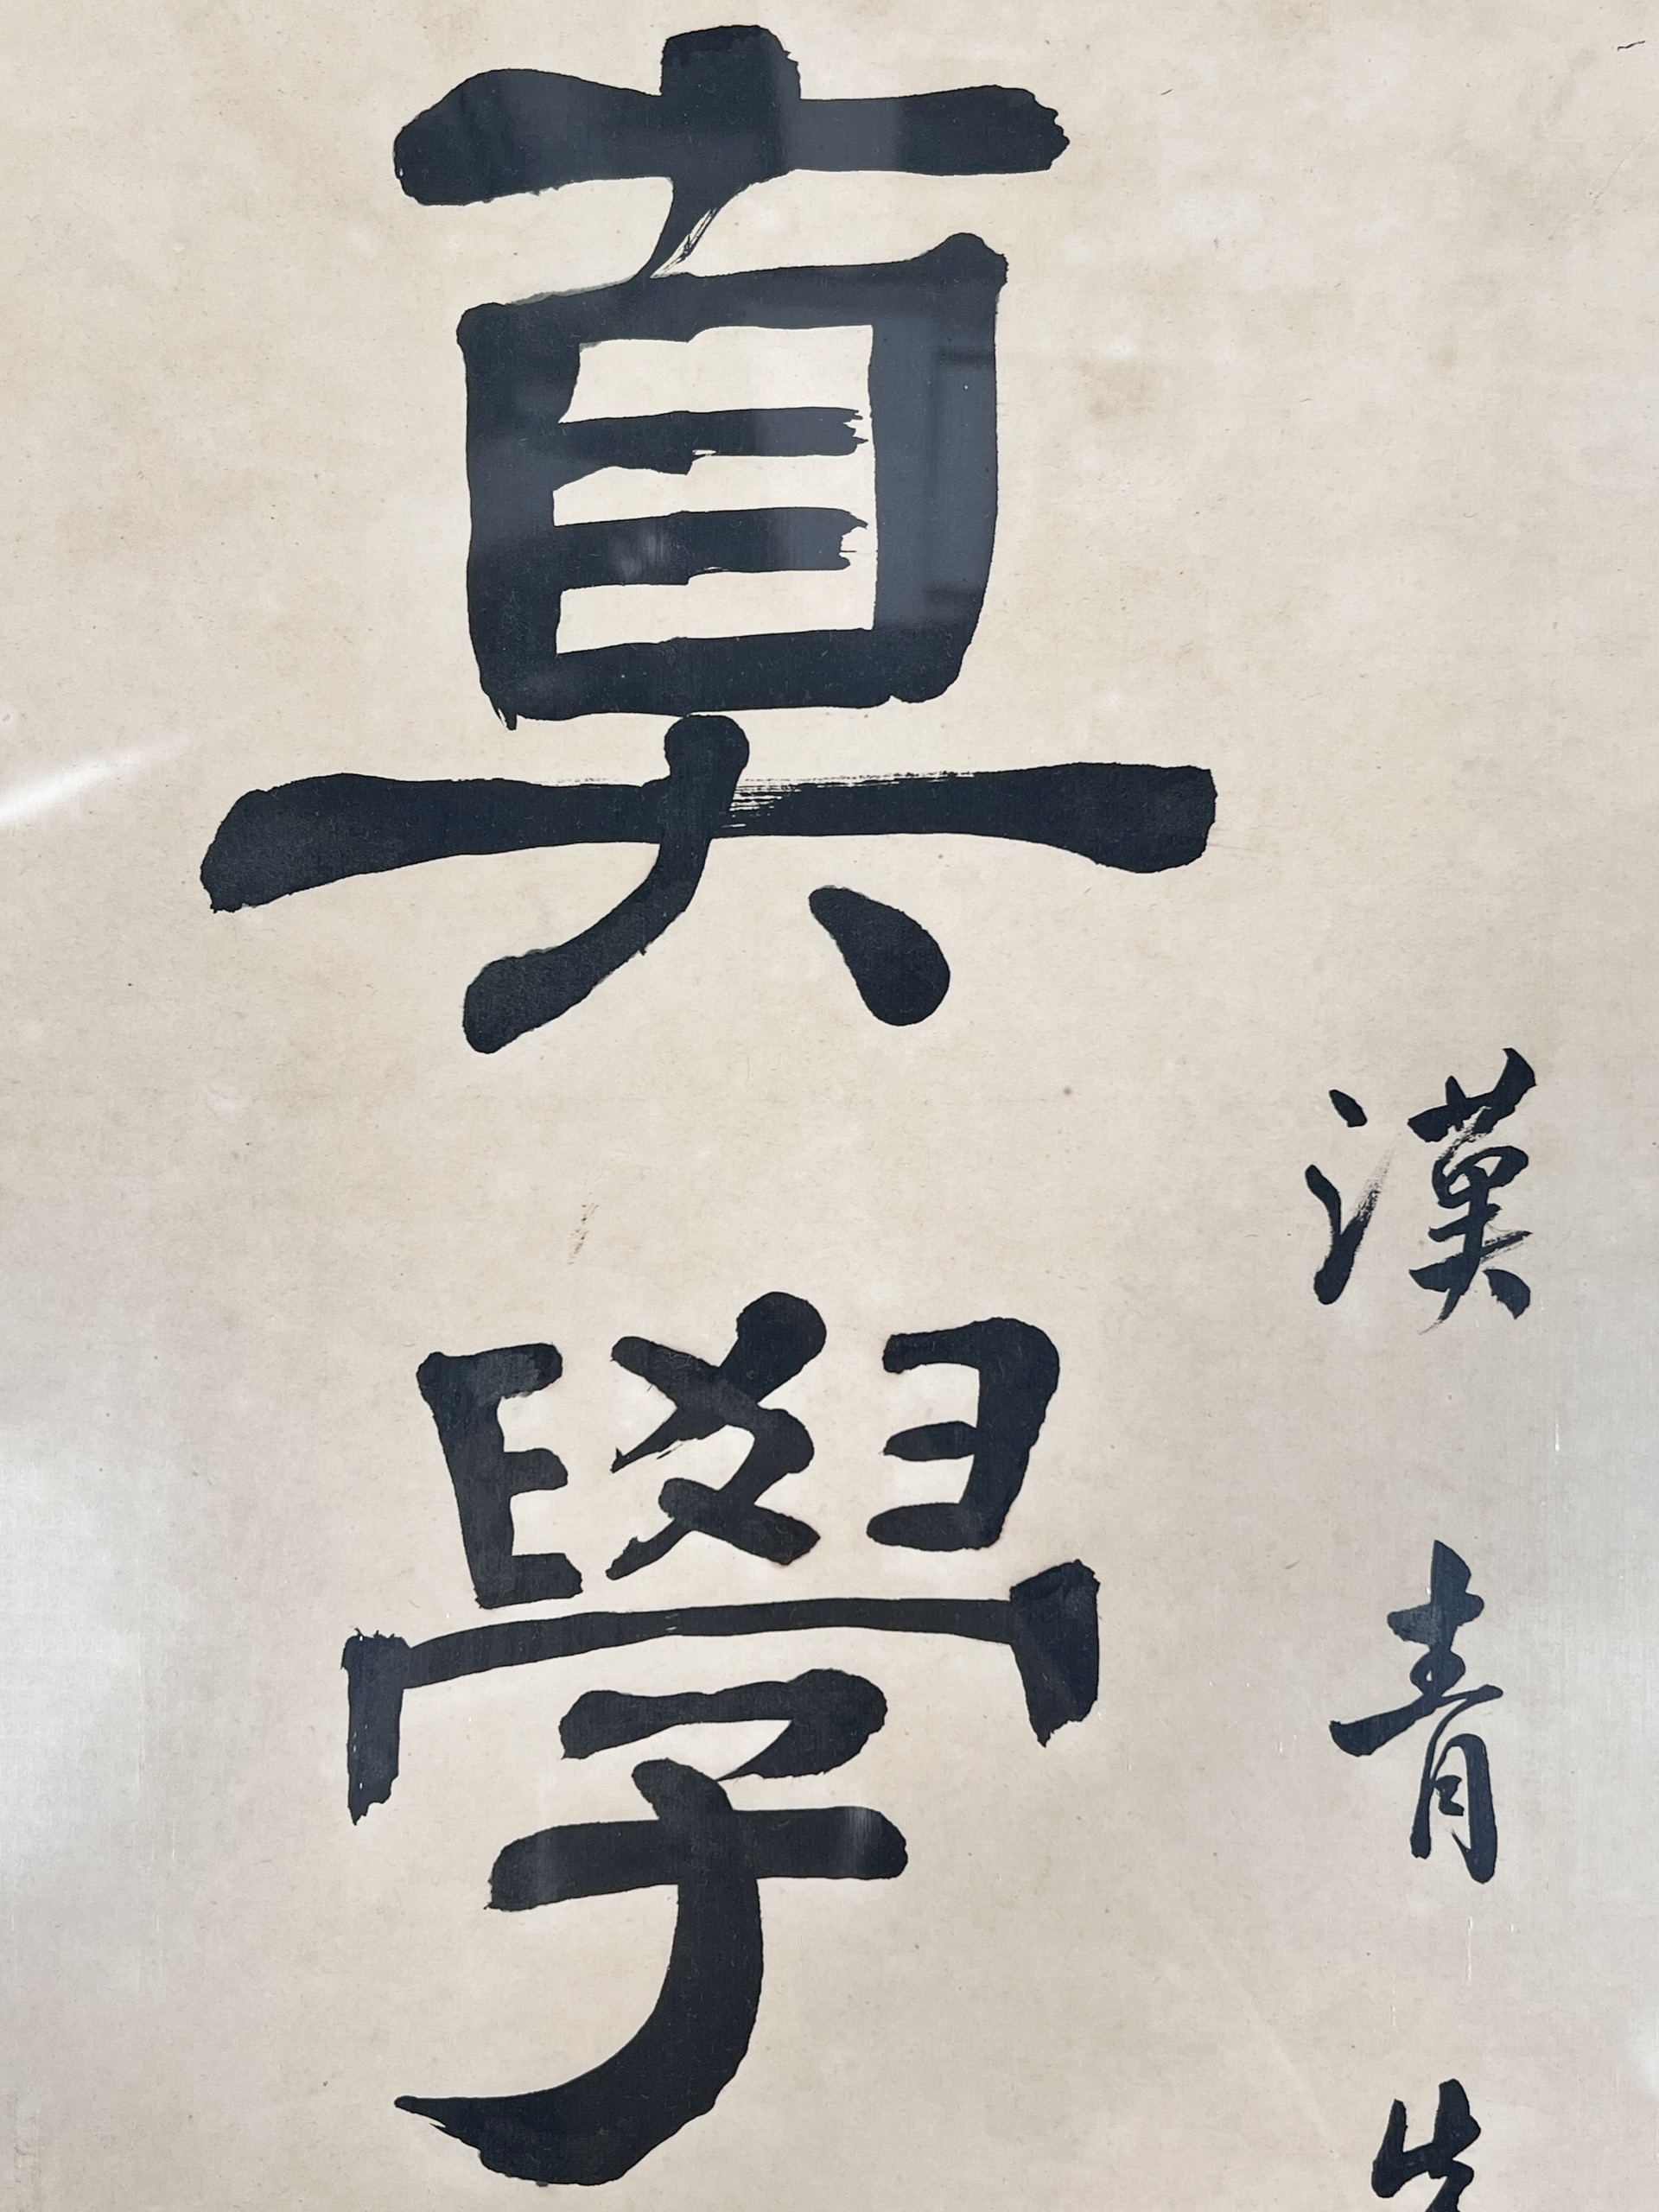 真學
漢青先